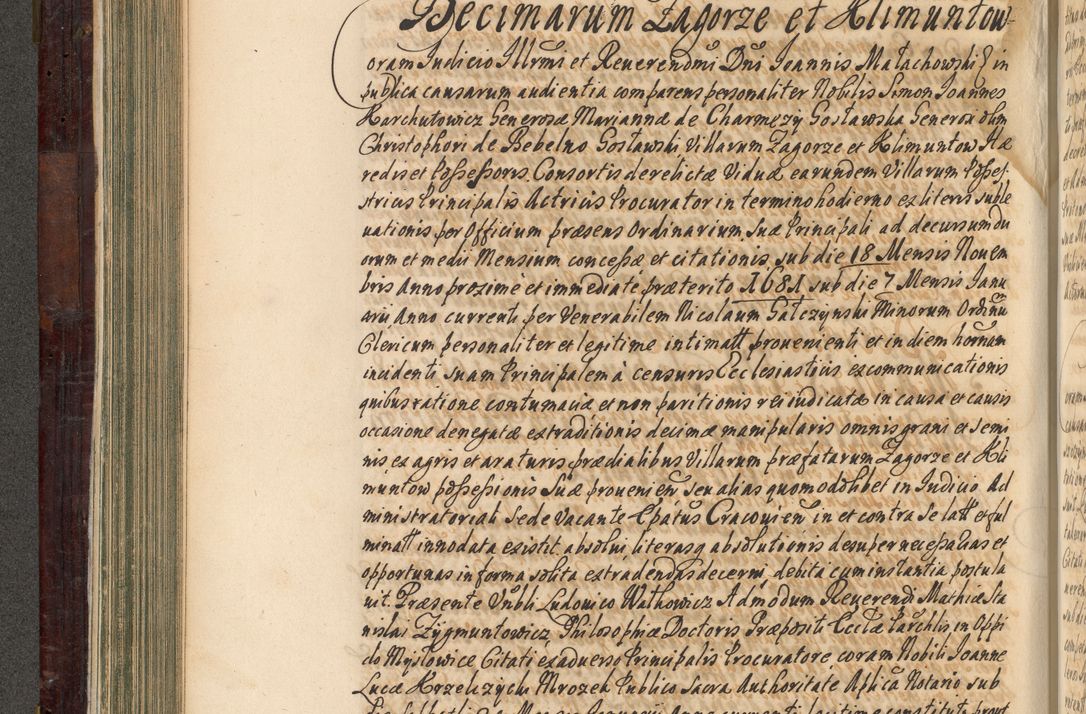 Decimarum Zagorze et Klimuntow
oram Judicio Illrmi et Reuerendmi Dni Joannis Małachowski E in
publica causarum audientia comparens personaliter Nobilis Simon Joannes
Harchutowicz Generosæ Mariannæ de Charmęzy Gosławska Generosi olim
Christophori de Bebelno Gosławski Villarum Zagorze et Klimuntow Hæ
redis et Possessoris Consortis derelictæ Viduæ earundem Villarum Posses
stricis Principalis Actricis Procurator in termino hodierno ex literis suble
uationis per Officium præsens Ordinarium Suæ Principali ad decursum du
orum et medii Mensium concessæ et citationis sub die 18 Mensis Nouem
bris Anno proxime et immediate præterito 1681 sub die 7 Mensis Janu
arii Anno currenti per Venerabilem Nicolaum Gałczynski Minorum Ordinũ
Clericum personaliter et legitime intimatt prouenienti et in diem hornam
incidenti suam Principalem à censuris Ecclesiasticis excommunicationis
quibus ratione contumaciæ et non paritionis rei iudicatæ in causa et causis
occasione denegatæ extraditionis decimæ manipularis omnis grani et semi
nis ex agris et araturis prædialibus Villarum præfatarum Zagorze et Kli
muntow possessionis Suæ prouenien̄ seu alias quomodolibet in Judicio Ad
ministratoriali Sede Vacante Epatus Cracouien̄ in et contra se latt et ful
minatt innodata existit absolui literasq absolutionis desuper necessarias et
opportunas in forma solita extradendas decerni debita cum instantia postula
uit. Præsente Nobli Ludouico Wathowicz Admodum Reuerendi Mathiæ Sta
nislai Zygmuntowicz Philosophiæ Doctoris Præpositi Ecclæ Parchlis in Oppi
do Mysłowice Citati ex aduerso Principalis Procuratore coram Nobili Joanne
Luca Krzelczycki Mrozek Publico Sacra Authoritate Aplica Notario sub